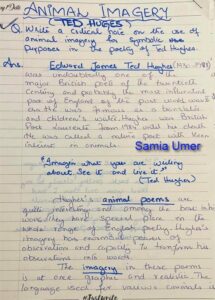 ANIMAL IMAGERY
(TED HUGES)
Q. Write a critical note on the use of
animal imagery for symbolic
purposes in the poetry of Ted Hughes.
Ans. Edward James Ted Hughes (1930-1998)
was undoubtedly one of the
major British poet of the twentieth
century and probably the most influential
poet of England of the post world war II
era. He was famous as a
and children's writer. Hughes was British
Poet Laureate from 1984 until his death.
He was called a nature poet with keen
interest in animals.
Samia Umer
"Imagine what you are writing
about. See it and live it"
(Ted Hughes)
Hughes's animal poems are
quite and among the best
have special place in the
whole range of English poetry. Hughe's
imagery has power of
observation and capacity to transform his
observations into words.
The imagery in these poems
is at once graphic and realistic. The
language used for various animals is